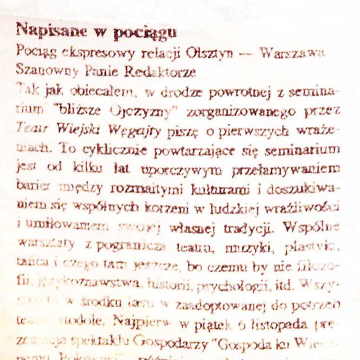 Napisane w pociągu
Pociąg ekspresowy relacji Olsztyn — Warszawa
Szanowny Panie Redaktorze
Tak jak obiecałem, w drodze powrotnej z semina-
rium "bliższe Ojczyzny" zorganizowanego przez
Teatr Wiejski Węgajty piszę o pierwszych wraże-
niach. To cyklicznie powtarzające się seminarium
jest od kilku lat uporczywym przełamywaniem
barier między rozmaitymi kulturami i doszukiwa-
niem się wspólnych korzeni w ludzkiej wrażliwości
i umiłowaniem swojej własnej tradycji. Wspólne
warsztaty z pogranicza teatru, muzyki, plastyki,
tańca i czego tam jeszcze, bo czemu by nie filozo-
fii, językoznawstwa, historii, psychologii, itd. Wszy-
w środku lasu w zaadoptowanej do potrzeb
stodole. Najpierw w piątek 6 listopada pre-
zentacja spektaklu Gospodarzy "Gospoda ku